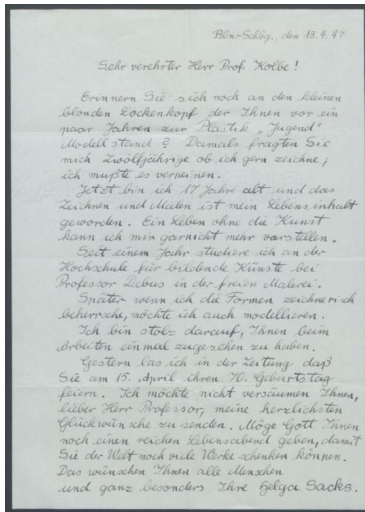 Bln-Schbg., den 13.4.47
Sehr verehrter Herr Prof. Kolbe!
Erinnern Sie sich noch an den kleinen
blonden Lockenkopf der Ihnen vor ein
paar Jahren zur Plastik „Jugend"
Modell stand? Damals fragten Sie
mich Zwölfjährige ob ich gern zeichne;
ich mußte es verneinen.
Jetzt bin ich 17 Jahre alt und das
Zeichnen und Malen ist mein Lebensinhalt
geworden. Ein Leben ohne die Kunst
kann ich mir garnicht mehr vorstellen.
Seit einem Jahr studiere ich an der
Hochschule für bildende Künste bei
Professor Debus in der freien Malerei.
Später wenn ich die Formen zeichnerisch
beherrsche, möchte ich auch modellieren.
Ich bin stolz darauf, Ihnen beim
Arbeiten einmal zugesehen zu haben.
Gestern las ich in der Zeitung daß
Sie am 15. April ihren 70. Geburtstag
feiern. Ich möchte nicht versäumen Ihnen,
lieber Herr Professor, meine herzlichsten
Glückwünsche zu senden. Möge Gott Ihnen
noch einen reichen Lebensabend geben, damit
Sie der Welt noch viele Werke schenken können.
Das wünschen Ihnen alle Menschen
und ganz besonders Ihre Helga Sacks.